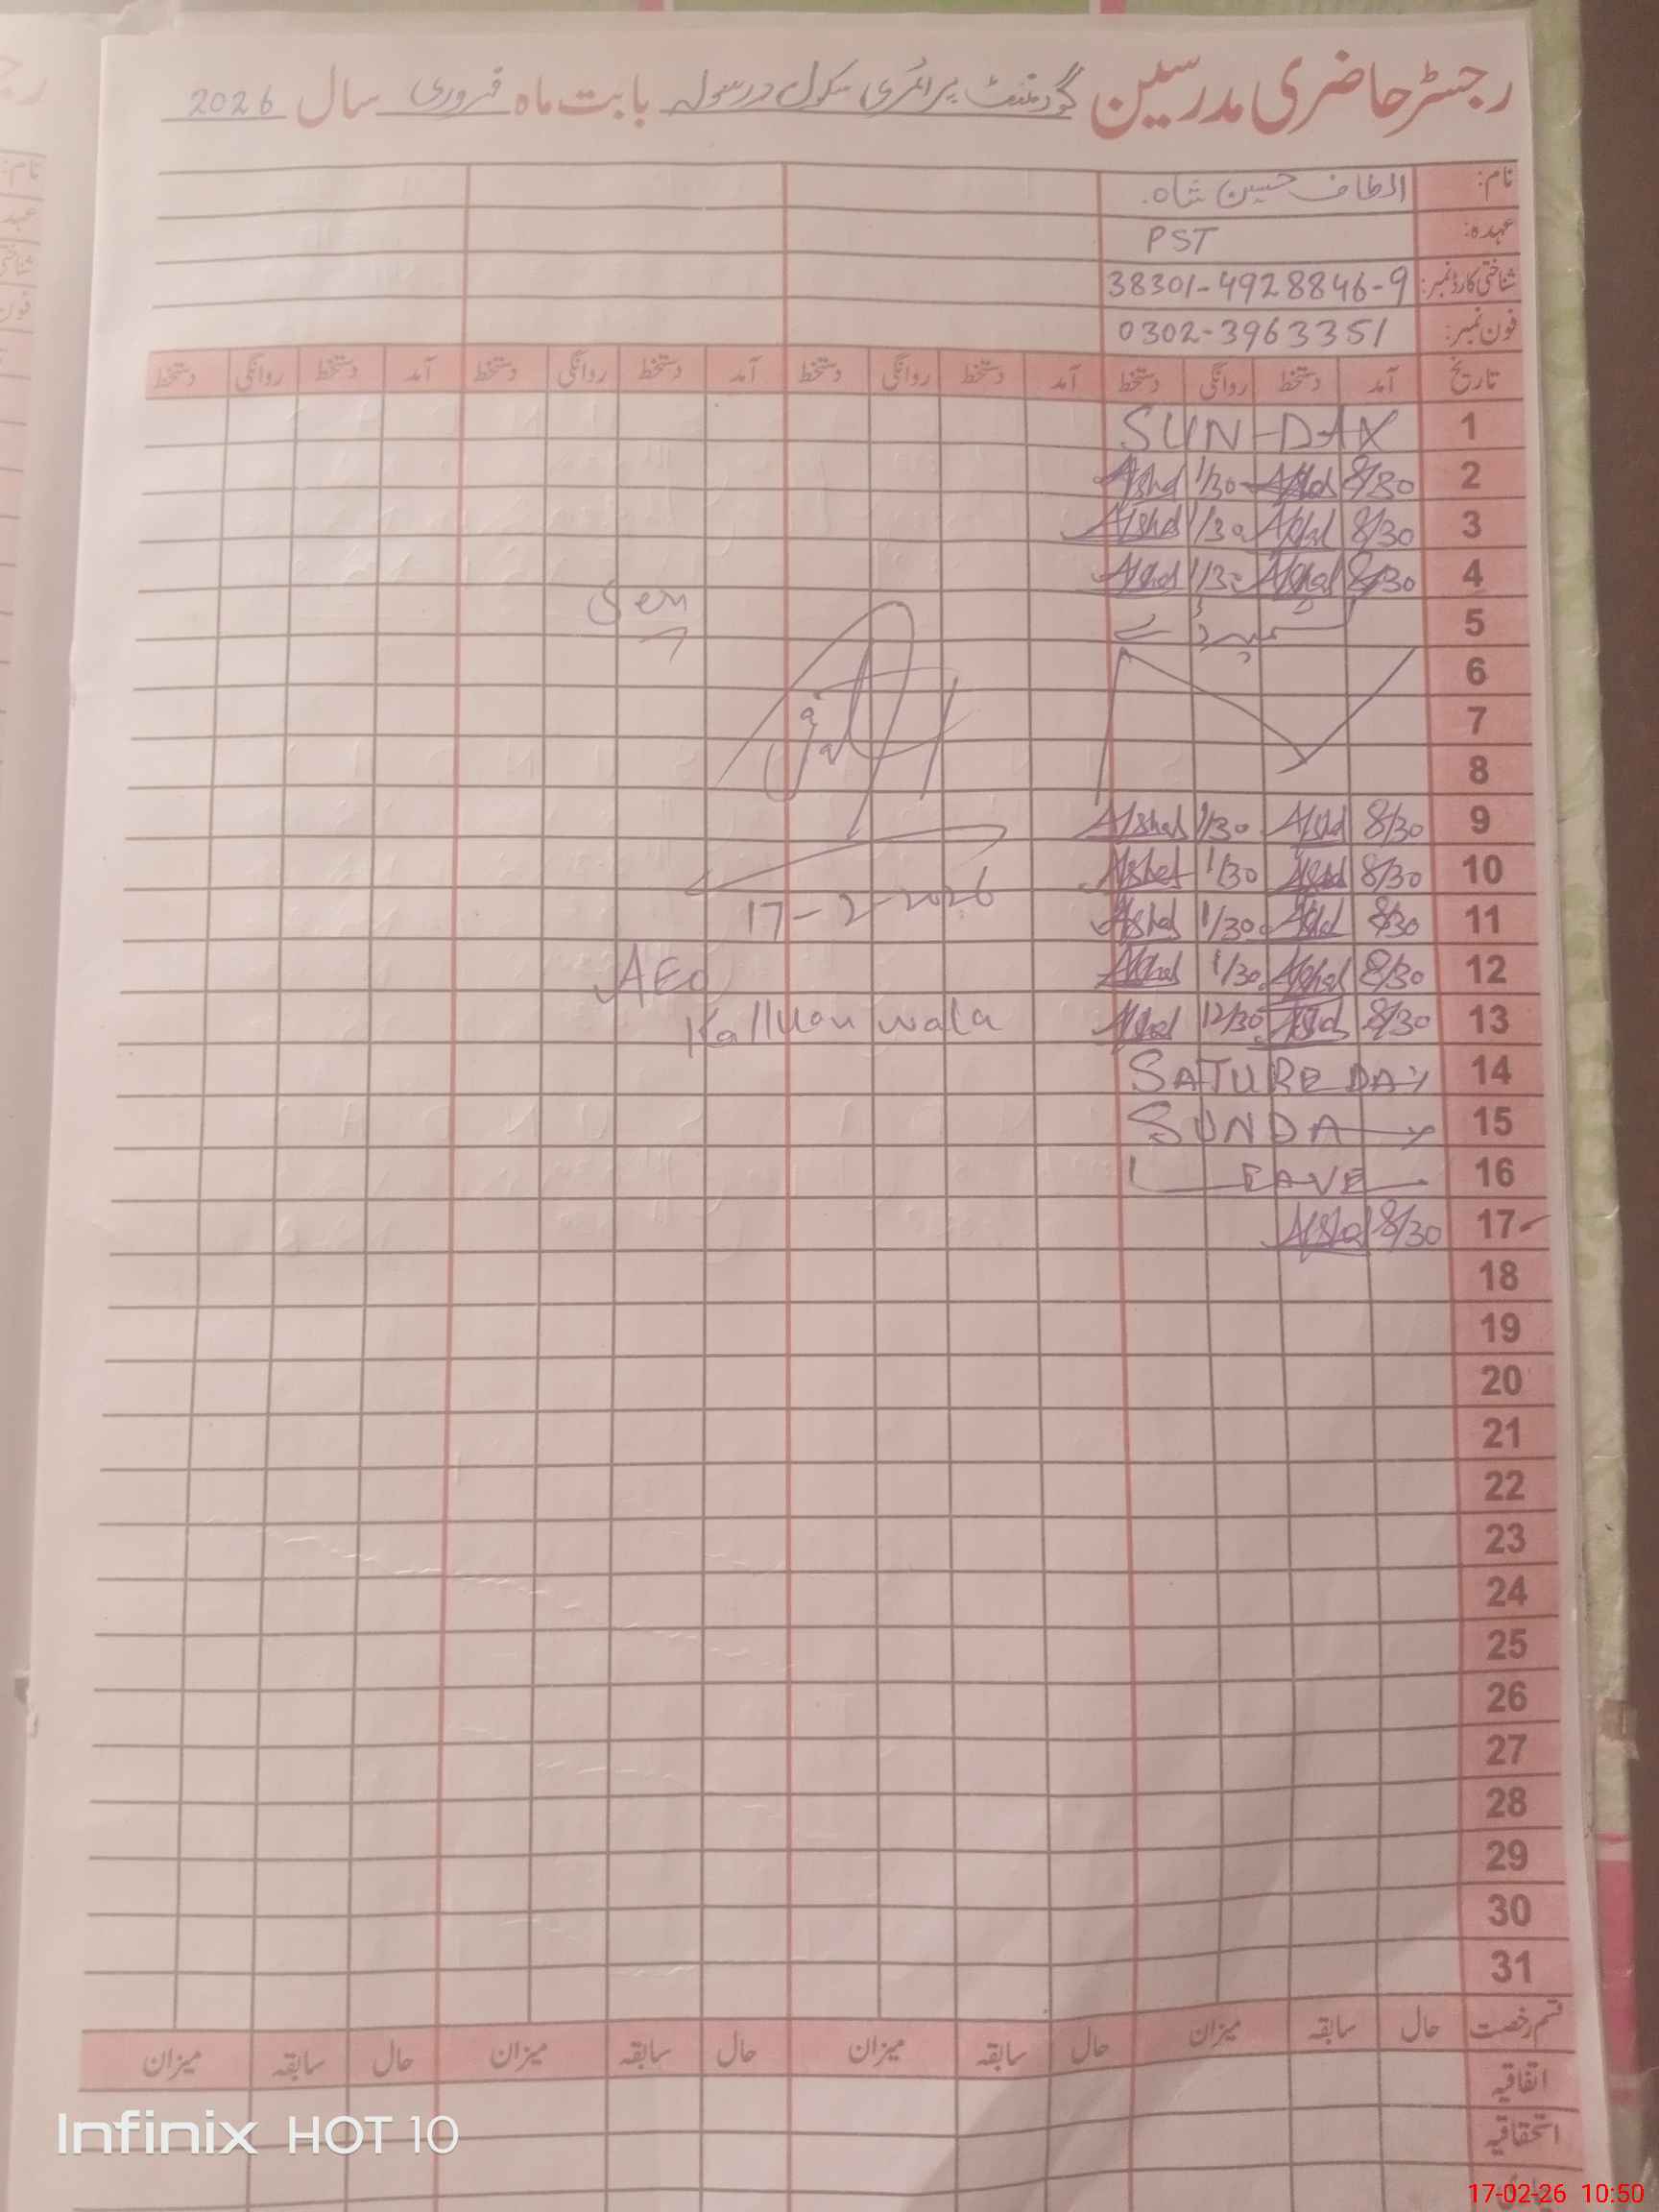 رجسٹر حاضری مدرسین گورنمنٹ پرائمری سکول درسولہ بابت ماہ فروری سال 2026
نام: الطاف حسین شاہ
عہدہ: PST
شناختی کارڈ نمبر: 38301-4928846-9
فون نمبر: 0302-3963351
تاریخ آمد دستخط روانگی دستخط آمد دستخط روانگی دستخط آمد دستخط روانگی دستخط آمد دستخط روانگی دستخط
1 SUN-DAY
2 8/30 1/30
3 8/30 1/30
4 8/30 1/30
5
6
7
8
9 8/30 1/30
10 8/30 1/30
11 8/30 1/30
12 8/30 1/30
13 8/30 12/30
14 SATUREDAY
15 SUNDAY
16 LEAVE
17 8/30
Seen
17-2-2026
AEO
Kalluanwala
18
19
20
21
22
23
24
25
26
27
28
29
30
31
قسم رخصت حال سابقہ میزان حال سابقہ میزان حال سابقہ میزان حال سابقہ میزان
اتفاقیہ
استحقاقیہ
Infinix HOT 10
17-02-26 10:50